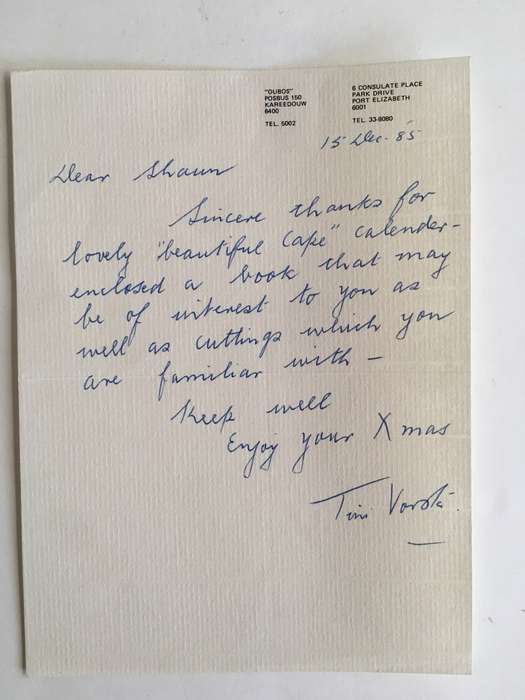 "OUBOS"
POSBUS 150
KAREEDOUW
6400
TEL. 5002
6 CONSULATE PLACE
PARK DRIVE
PORT ELIZABETH
6001
TEL. 33-8080
15 Dec. 85
Dear Shaun
Sincere thanks for
lovely "beautiful Cape" calender -
enclosed a book that may
be of interest to you as
well as cuttings which you
are familiar with -
Keep well
Enjoy your Xmas